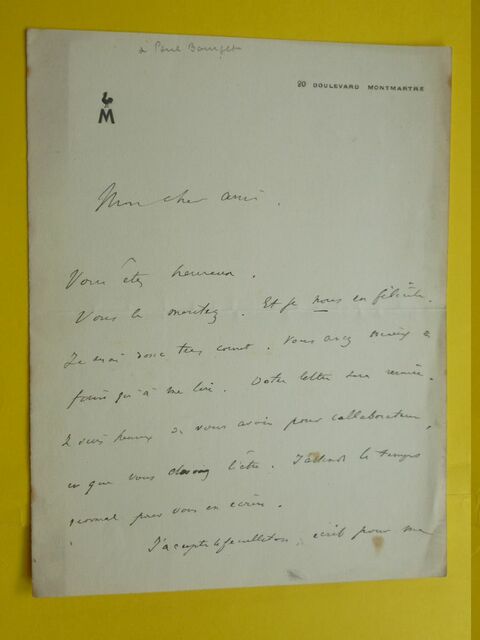 à Paul Bourget
20 BOULEVARD MONTMARTRE
M
Mon cher ami.
Vous êtes heureux.
Vous le méritez. Et je nous en félicite.
Je serai donc très court. Vous avez mieux à
faire qu'à me lire. Votre lettre sera
Je suis heureux de vous avoir pour collaborateur,
ce que vous l'être. J'attends le temps
normal pour vous en écrire.
J'accepte le feuilleton, écrit pour me